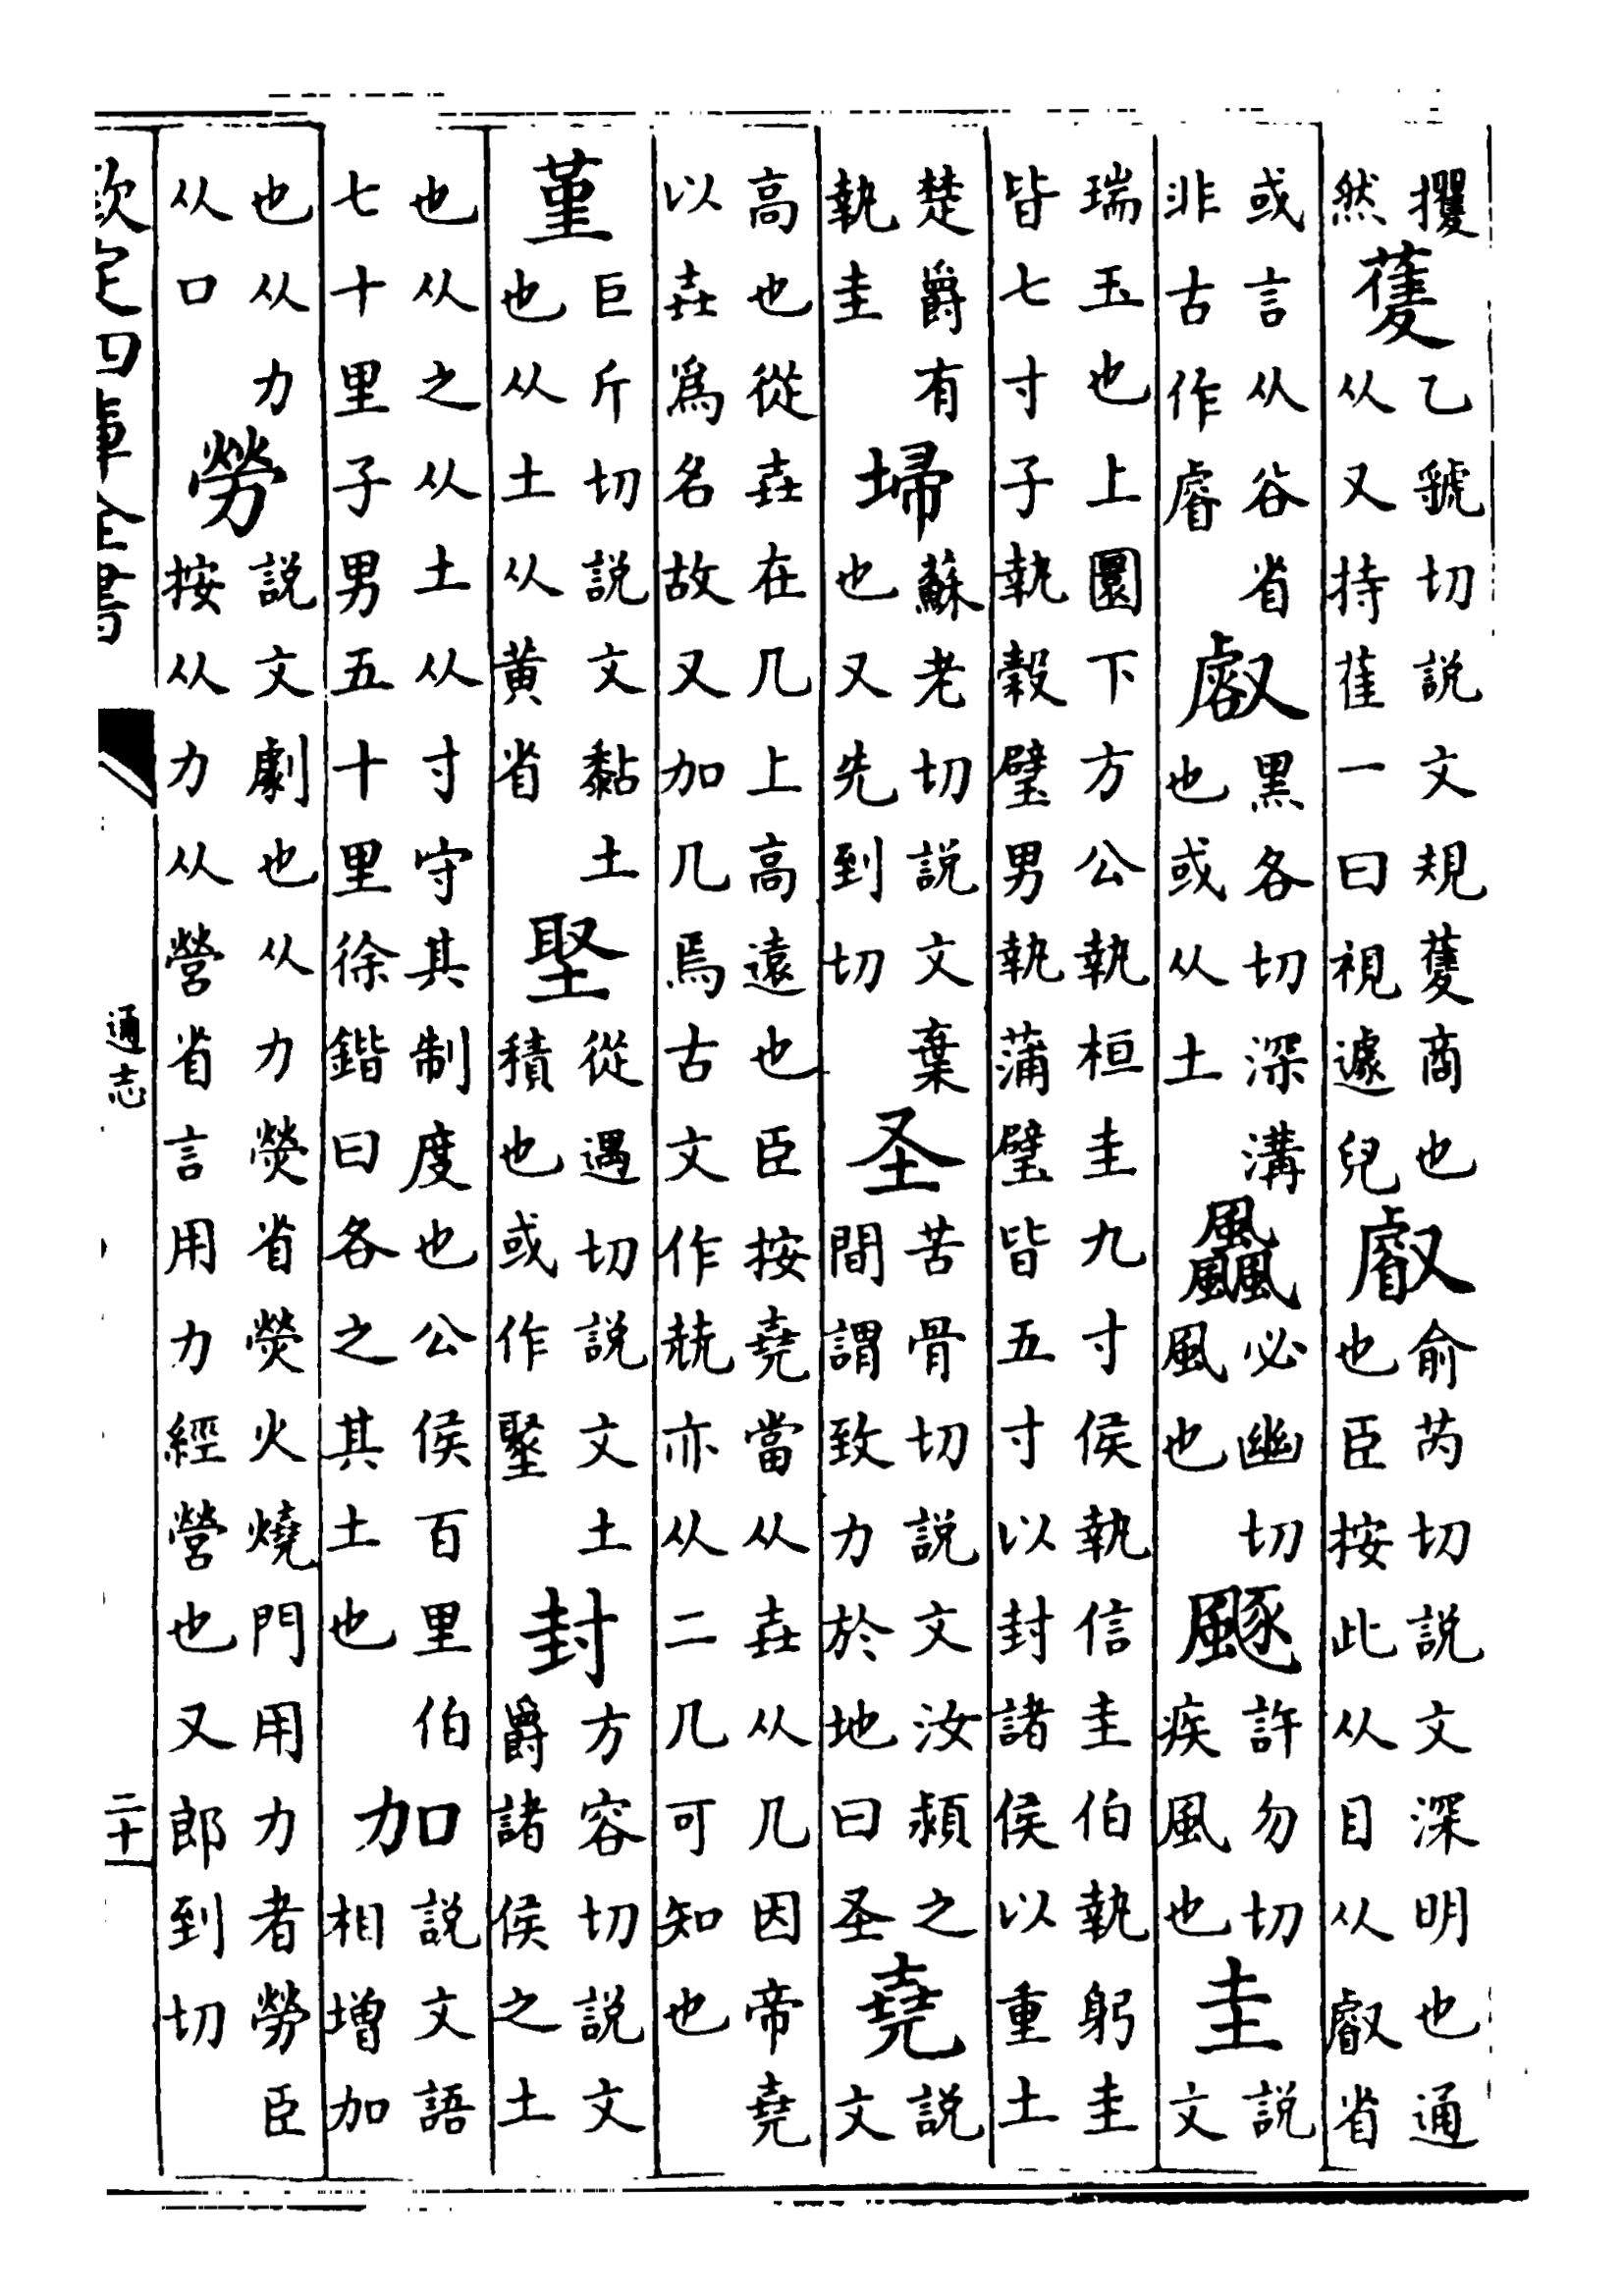 攫然蒦乙虢切説文規蒦商也从又持雈一曰視遽皃叡俞芮切説文深明也通也臣按此从目从叡省
或言从谷省非古作睿㕡黑各切深溝也或从土飍必幽切風也許勿切疾風也圭説文
瑞玉也上圜下方公執桓圭九寸侯執信圭伯執躬圭皆七寸子執穀璧男執蒲璧皆五寸以封諸侯以重土
楚爵有執圭埽蘇老切説文棄也又先到切圣苦骨切説文汝潁之間謂致力於地曰圣堯説文
高也從垚在几上高遠也臣按堯當从垚从几因帝堯以垚爲名故又加几焉古文作兟亦从二几可知也
堇巨斤切説文黏土也从土从黄省埾從遇切説文土積也或作封方容切説文爵諸侯之土
也从之从土从寸守其制度也公侯百里伯七十里子男五十里徐鍇曰各之其土也加説文語相增加
也从力从口勞説文劇也从力熒省熒火燒門用力者勞臣按从力从營省言用力經營也又郎到切
欽定四庫全書
通志
二十